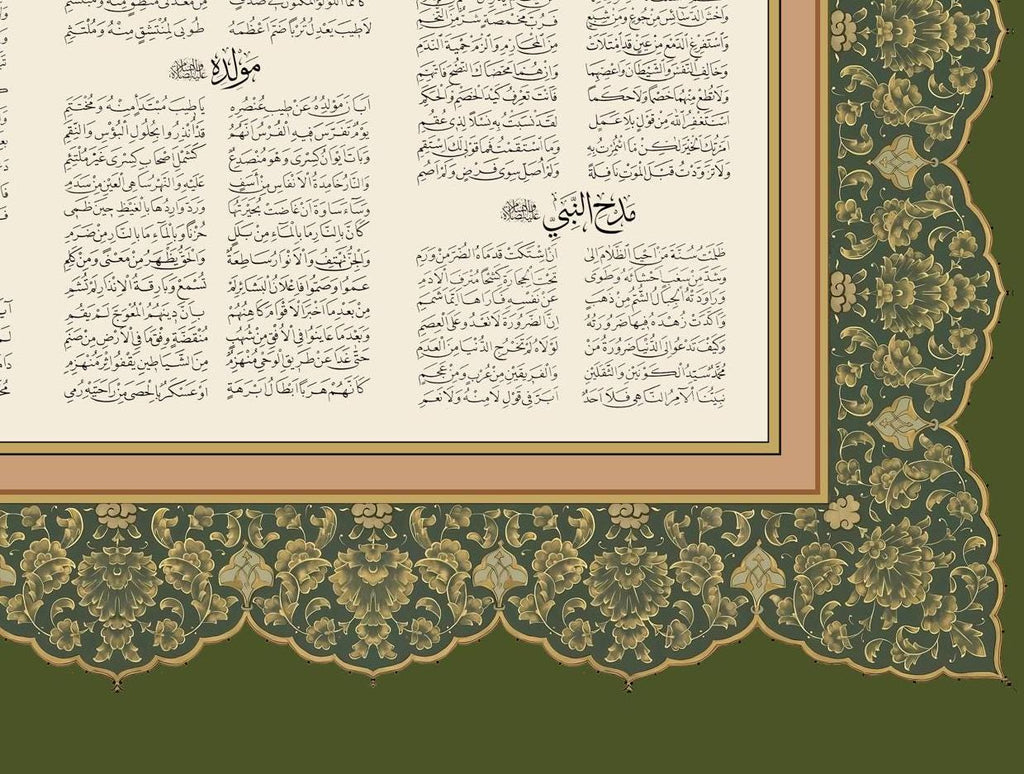 واخش الدسائس من جوع ومن شبع فرب مخمصة شر من التخم
واستفرغ الدمع من عين قد امتلأت من المحارم والزم حمية الندم
وخالف النفس والشيطان واعصهما وإن هما محضاك النصح فاتهم
ولا تطع منهما خصما ولا حكما فأنت تعرف كيد الخصم والحكم
أستغفر الله من قول بلا عمل لقد نسبت به نسلا لذي عقم
أمرتك الخير لكن ما ائتمرت به وما استقمت فما قولي لك استقم
ولا تزودت قبل الموت نافلة ولم أصل سوى فرض ولم أصم
مدح النبي عليه الصلاة والسلام
ظلمت سنة من أحيا الظلام إلى أن اشتكت قدماه الضر من ورم
وشد من سغب أحشاءه وطوى تحت الحجارة كشحا مترف الأدم
وراودته الجبال الشم من ذهب عن نفسه فأراها أيما شمم
وأكدت زهده فيها ضرورته إن الضرورة لا تعدو على العصم
وكيف تدعو إلى الدنيا ضرورة من لولاه لم تخرج الدنيا من العدم
محمد سيد الكونين والثقلين والفريقين من عرب ومن عجم
نبينا الآمر الناهي فلا أحد أبر في قول لا منه ولا نعم
كأنما اللؤلؤ المكنون في صدف من معدني منطق منه ومبتسم
لا طيب يعدل تربا ضم أعظمه طوبى لمنتشق منه وملتثم
مولده عليه الصلاة والسلام
أبان مولده عن طيب عنصره يا طيب مبتدإ منه ومختتم
يوم تفرس فيه الفرس أنهم قد أنذروا بحلول البؤس والنقم
وبات إيوان كسرى وهو منصدع كشمل أصحاب كسرى غير ملتئم
والنار خامدة الأنفاس من أسف عليه والنهر ساهي العين من سدم
وساء ساوة أن غاضت بحيرتها ورد واردها بالغيظ حين ظمي
كأن بالنار ما بالماء من بلل حزنا وبالماء ما بالنار من ضرم
والجن تهتف والأنوار ساطعة والحق يظهر من معنى ومن كلم
عموا وصموا فإعلان البشائر لم تسمع وبارقة الإنذار لم تشم
من بعد ما أخبر الأقوام كاهنهم بأن دينهم المعوج لم يقم
وبعد ما عاينوا في الأفق من شهب منقضة وفق ما في الأرض من صنم
حتى غدا عن طريق الوحي منهزم من الشياطين يقفو إثر منهزم
كأنهم هربا أبطال أبرهة أو عسكر بالحصى من راحتيه رمي